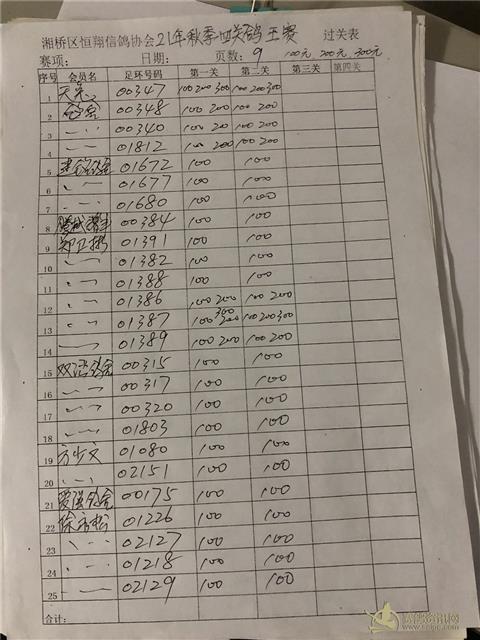 湘桥区恒翔信鸽协会21年秋季四关鸽王赛 过关表
赛项: 日期: 页数: 9 100元 200元 300元
序号 会员名 足环号码 第一关 第二关 第三关 第四关
1 00347 100 200 300 100 200 300
2 00348 100 200 100 200
3 〃 00340 100 20 100 200
4 〃 01812 100 200 100 200
5 01672 100 100
6 〃 01677 100 100
7 〃 01680 100 100
8 00384 100 100
9 01391 100 100
10 〃 01382 100 100
11 〃 01388 100 100
12 〃 01386 100 200 100 200
13 〃 01387 100 200 300 100 200 300
14 〃 01389 100 200 100 200
15 00315 100 100
16 〃 00317 100 100
17 〃 00320 100 100
18 〃 01803 100 100
19 方少文 01080 100 100
20 〃 02151 100 100
21 00175 100 100
22 01226 100 100
23 〃 02127 100 100
24 〃 01218 100 100
25 〃 02129 100 100
合计: